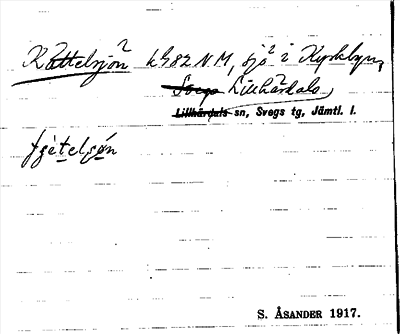 Kättelsjön k982 N M, sjö i Kyrkbyn,
Svegs Lillhärdals
Lillhärdals sn, Svegs tg, Jämtl. l.
S. ÅSANDER 1917.